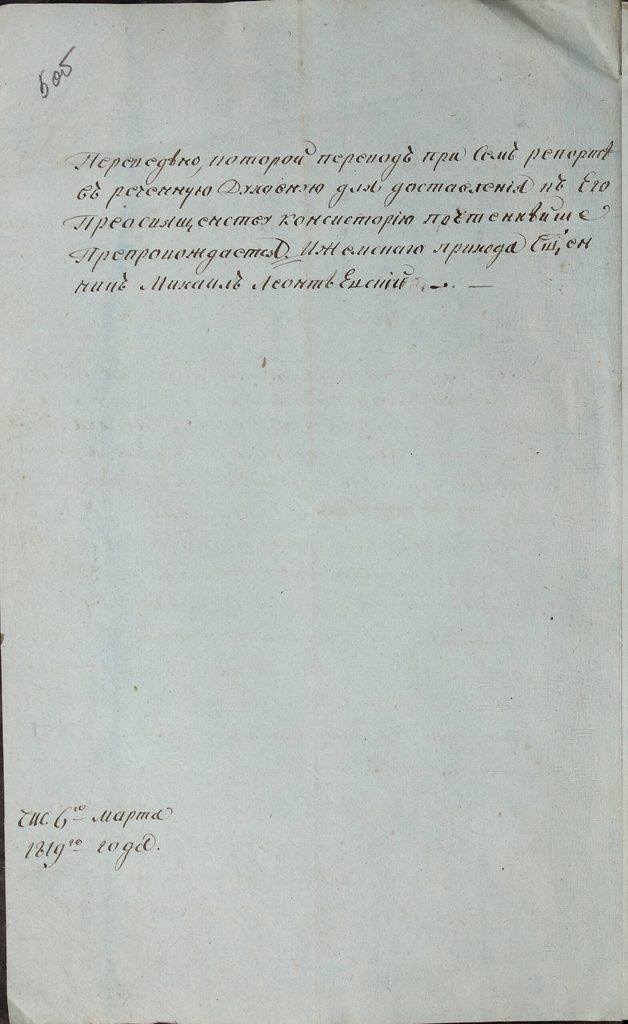 505
Переведѣно, которой переводъ при семъ репортѣ
въ реченную Духовную для доставленія къ Его
Преосвященству консисторію почтеннѣйше
Препровождается. Ижемскаго прихода Сщ҃ен
никъ Михаилъ Леонтѣевскій
Чис. 6го марта
1819го года.